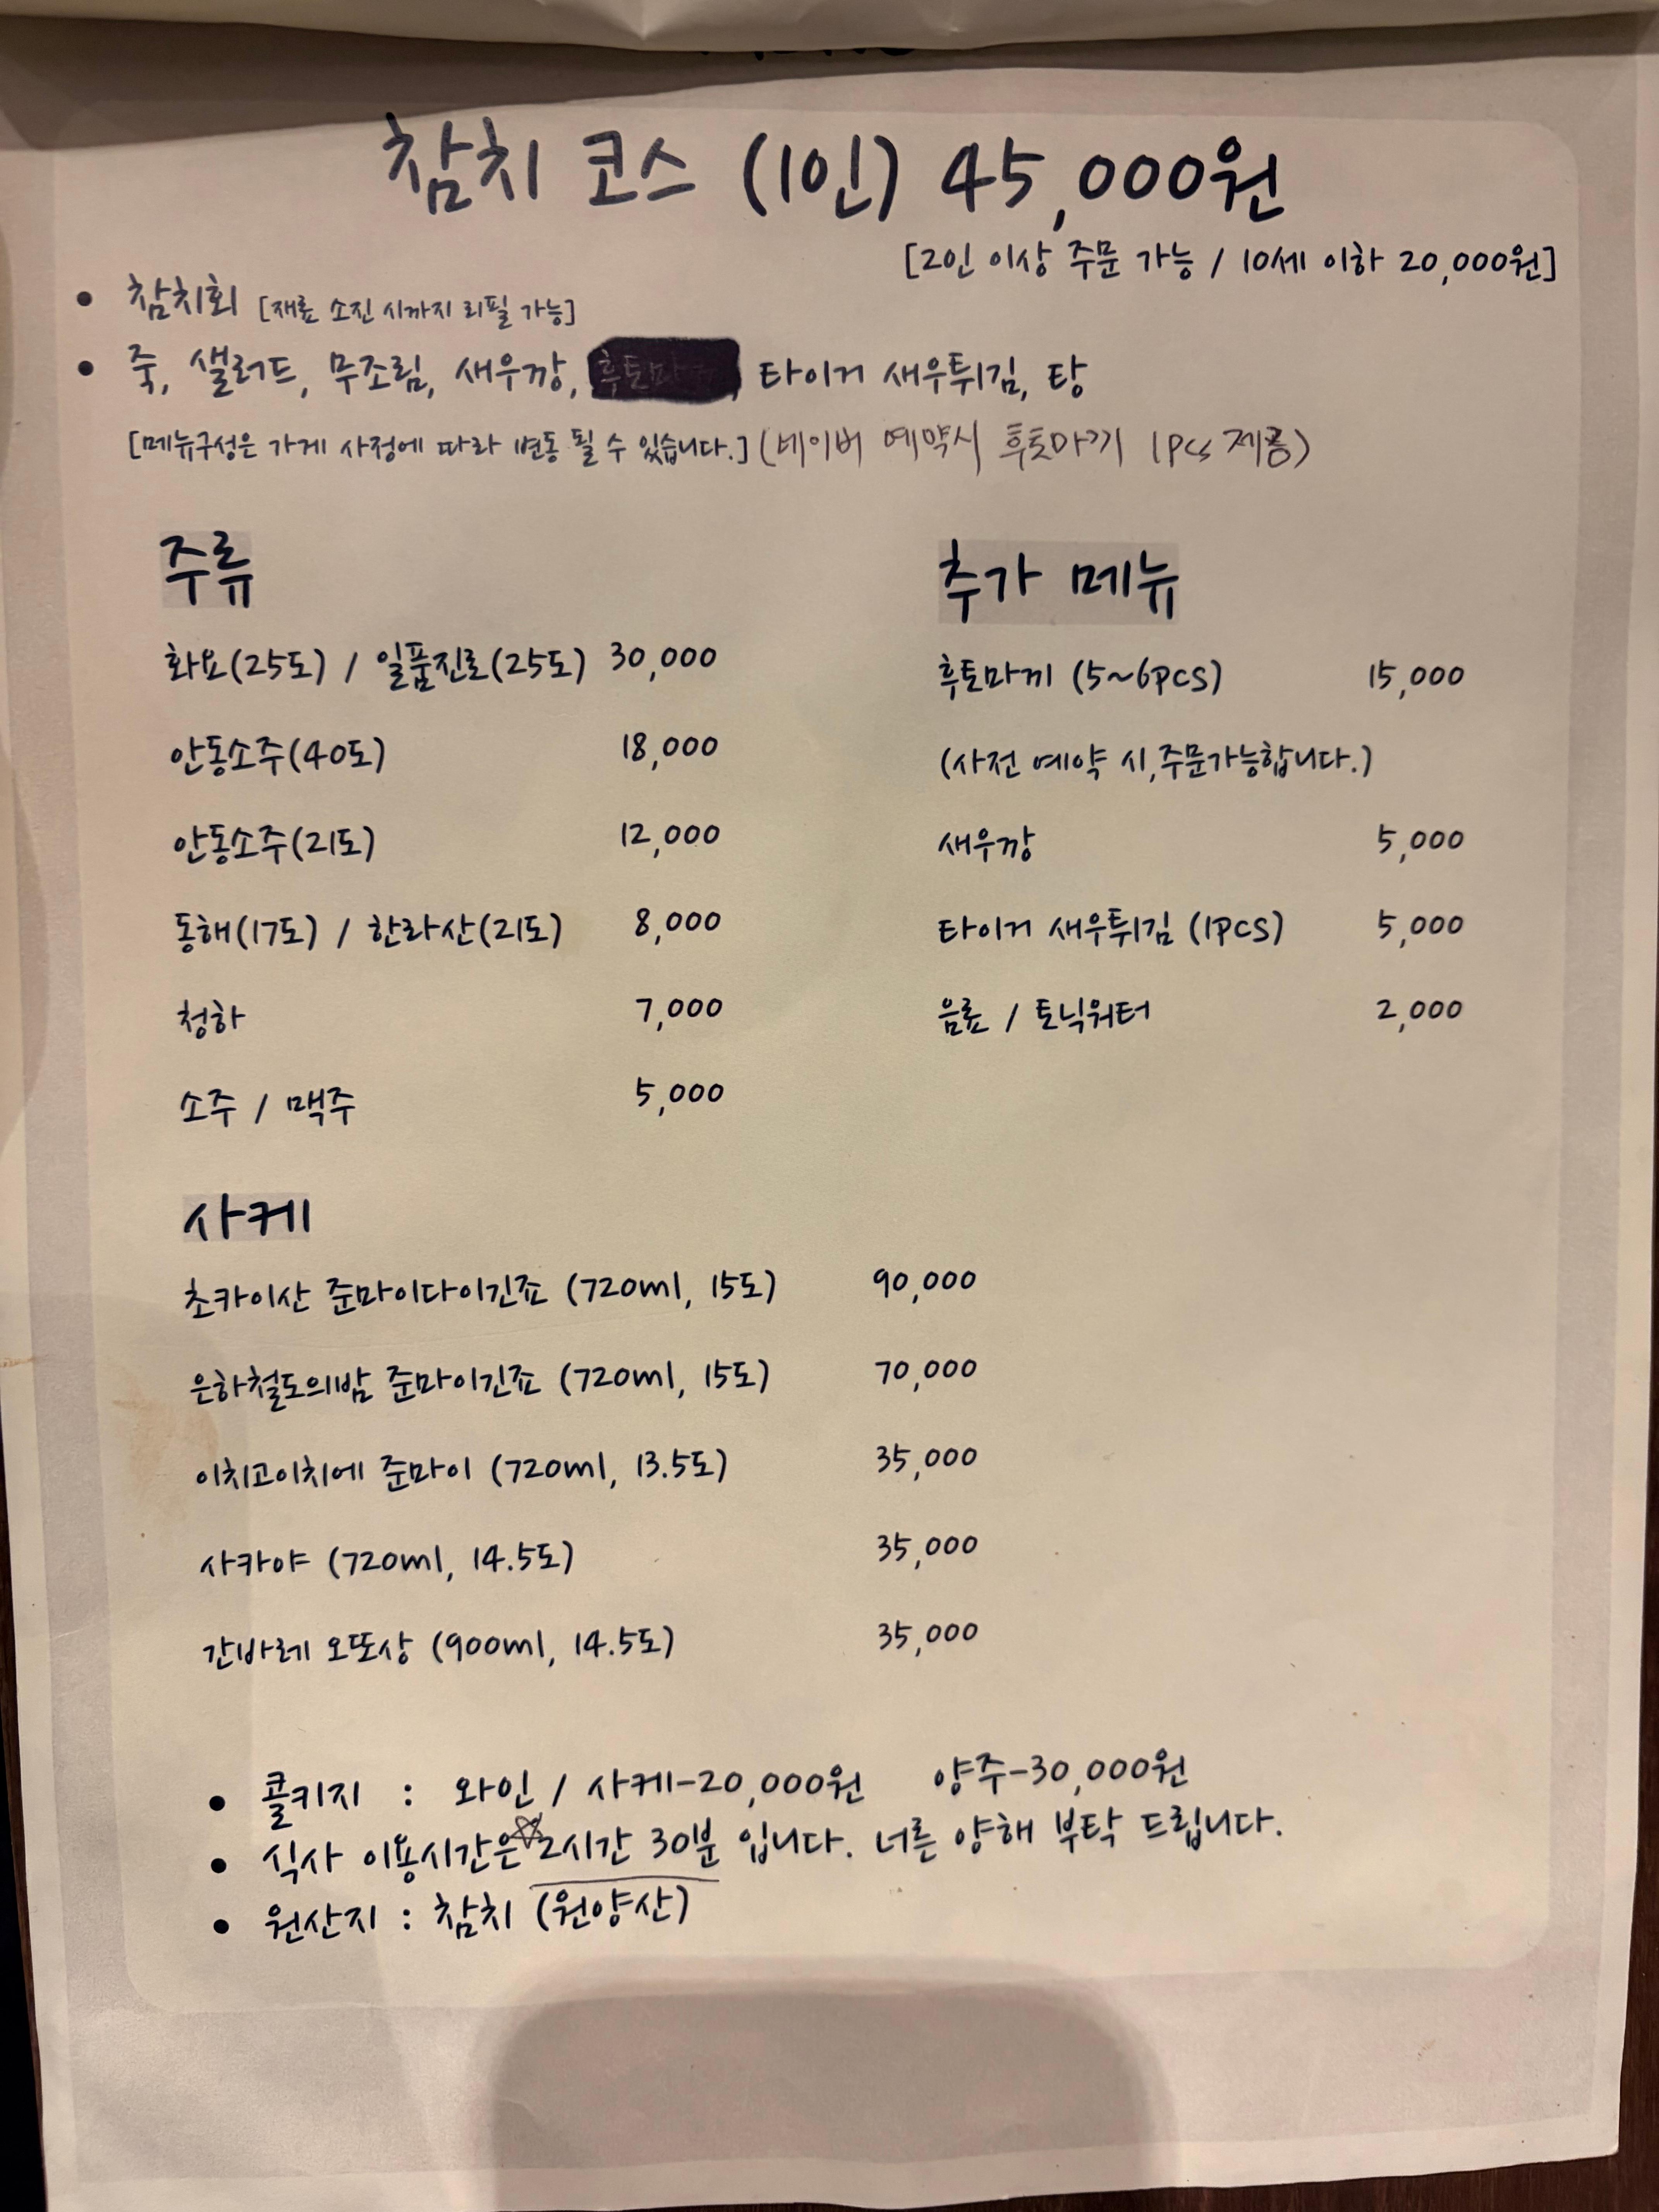 참치 코스 (1인) 45,000원
[2인 이상 주문 가능 / 10세 이하 20,000원]
• 참치회 [재료 소진 시까지 리필 가능]
• 죽, 샐러드, 무조림, 새우깡, 타이거 새우튀김, 탕
[메뉴구성은 가게 사정에 따라 변동 될 수 있습니다.] (네이버 예약시 후토마끼 1pcs 제공)
주류
화요(25도) / 일품진로(25도) 30,000
안동소주(40도) 18,000
안동소주(21도) 12,000
동해(17도) / 한라산(21도) 8,000
청하 7,000
소주 / 맥주 5,000
추가 메뉴
후토마끼 (5~6pcs) 15,000
(사전 예약 시,주문가능합니다.)
새우깡 5,000
타이거 새우튀김 (1pcs) 5,000
음료 / 토닉워터 2,000
사케
초카이산 준마이다이긴죠 (720ml, 15도) 90,000
은하철도의밤 준마이긴죠 (720ml, 15도) 70,000
이치고이치에 준마이 (720ml, 13.5도) 35,000
사카야 (720ml, 14.5도) 35,000
간바레 오또상 (900ml, 14.5도) 35,000
• 콜키지 : 와인 / 사케-20,000원 양주-30,000원
• 식사 이용시간은 2시간 30분 입니다. 너른 양해 부탁 드립니다.
• 원산지 : 참치 (원양산)